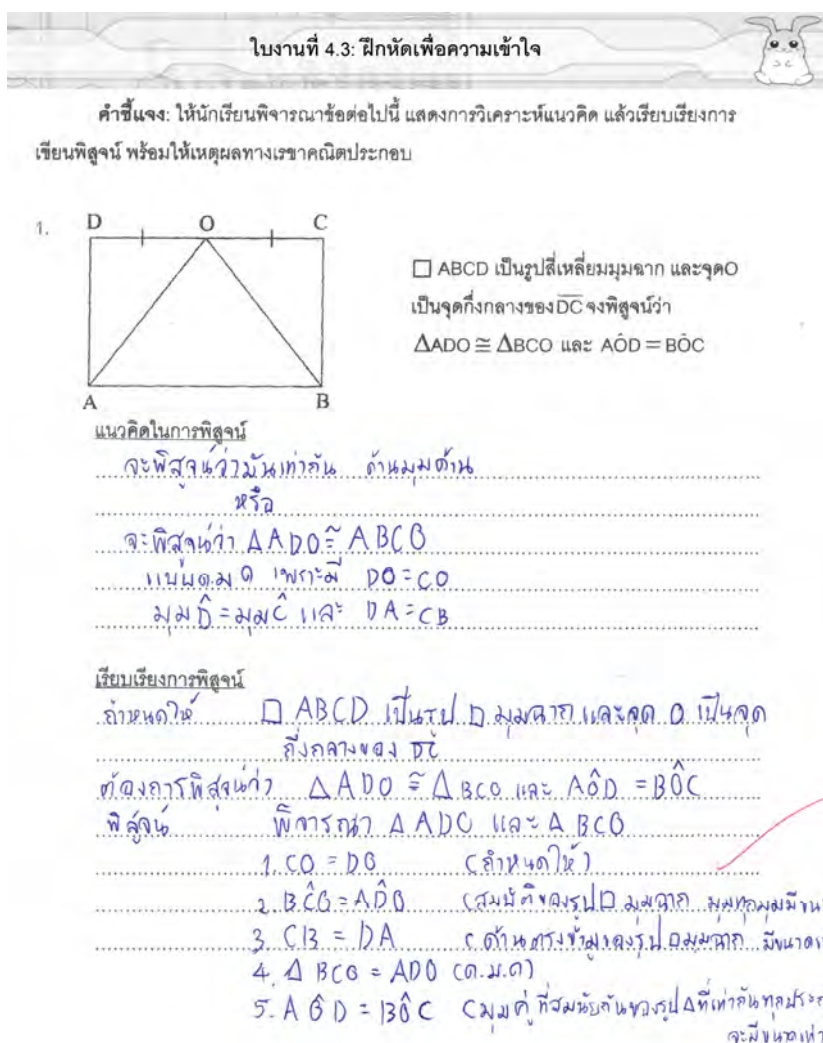 ใบงานที่ 4.3: ฝึกหัดเพื่อความเข้าใจ
คำชี้แจง: ให้นักเรียนพิจารณาข้อต่อไปนี้ แสดงการวิเคราะห์แนวคิด แล้วเรียบเรียงการ
เขียนพิสูจน์ พร้อมให้เหตุผลทางเรขาคณิตประกอบ
1.
D O C
□ ABCD เป็นรูปสี่เหลี่ยมมุมฉาก และจุดO
เป็นจุดกึ่งกลางของ DC จงพิสูจน์ว่า
ΔADO ≅ ΔBCO และ AÔD = BÔC
A B
แนวคิดในการพิสูจน์
จะพิสูจน์ว่ามันเท่ากัน ด้านมุมด้าน
หรือ
จะพิสูจน์ว่า Δ ADO ≅ Δ BCO
แบบ ด.ม.ด เพราะมี DO = CO
มุม D̂ = มุม Ĉ และ DA = CB
เรียบเรียงการพิสูจน์
กำหนดให้ □ ABCD เป็นรูป □ มุมฉาก และจุด O เป็นจุด
กึ่งกลางของ DC
ต้องการพิสูจน์ว่า Δ ADO ≅ Δ BCO และ AÔD = BÔC
พิสูจน์ พิจารณา Δ ADO และ Δ BCO
1. CO = DO (กำหนดให้)
2. BĈO = AD̂O (สมบัติของรูป □ มุมฉาก มุมทุกมุมมี
3. CB = DA (ด้านตรงข้ามของรูป □ มุมฉาก มีขนาด
4. Δ BCO = ADO (ด.ม.ด)
5. AÔD = BÔC (มุมคู่ที่สมนัยกันของรูป Δ ที่เท่ากันทุกประ
จะมีขนาดเท่า